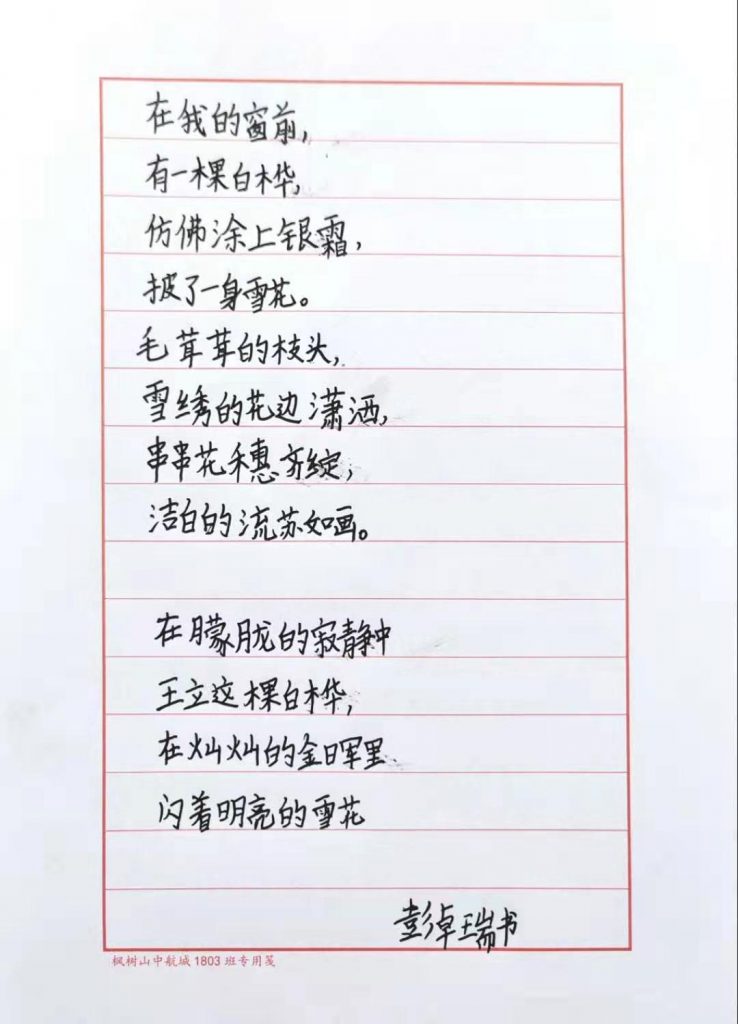 在我的窗前,
有一棵白桦,
仿佛涂上银霜,
披了一身雪花。
毛茸茸的枝头,
雪绣的花边潇洒,
串串花穗齐绽,
洁白的流苏如画。
在朦胧的寂静中
王立这棵白桦,
在灿灿的金晖里
闪着明亮的雪花
彭卓瑞书
枫树山中航城1803班专用笺